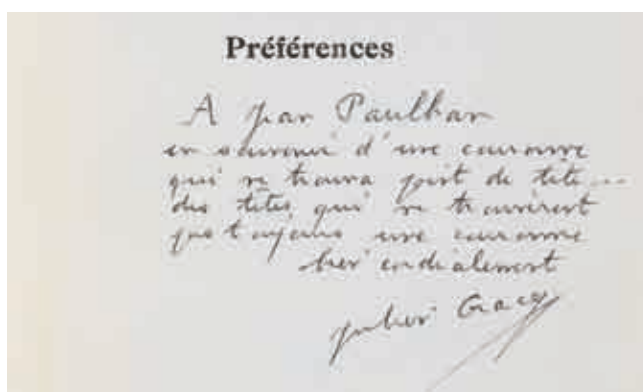 Préférences
A Jean Paulhan
en souvenir d'une couronne
qui ne trouva point de tête...
des têtes qui ne trouvèrent
pas toujours une couronne
bien cordialement
Julien Gracq